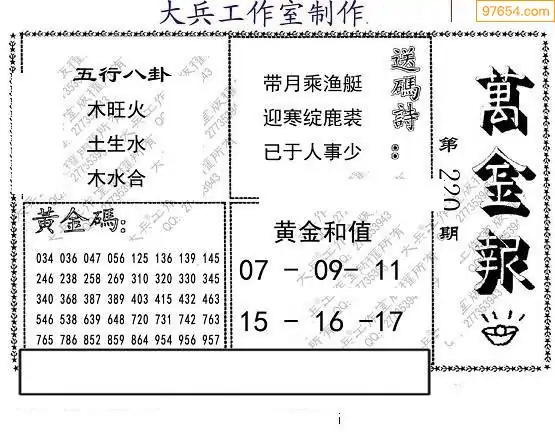 大兵工作室制作
97654.com
五行八卦
木旺火
土生水
木水合
送碼詩：
带月乘渔艇
迎寒绽鹿裘
已于人事少
萬金報
第220期
黃金碼：
034 036 047 056 125 136 139 145
246 238 258 269 310 320 330 345
340 368 387 389 403 415 432 463
546 538 639 648 720 731 742 763
765 786 852 859 864 954 956 957
黄金和值
07 - 09- 11
15 - 16 -17
i